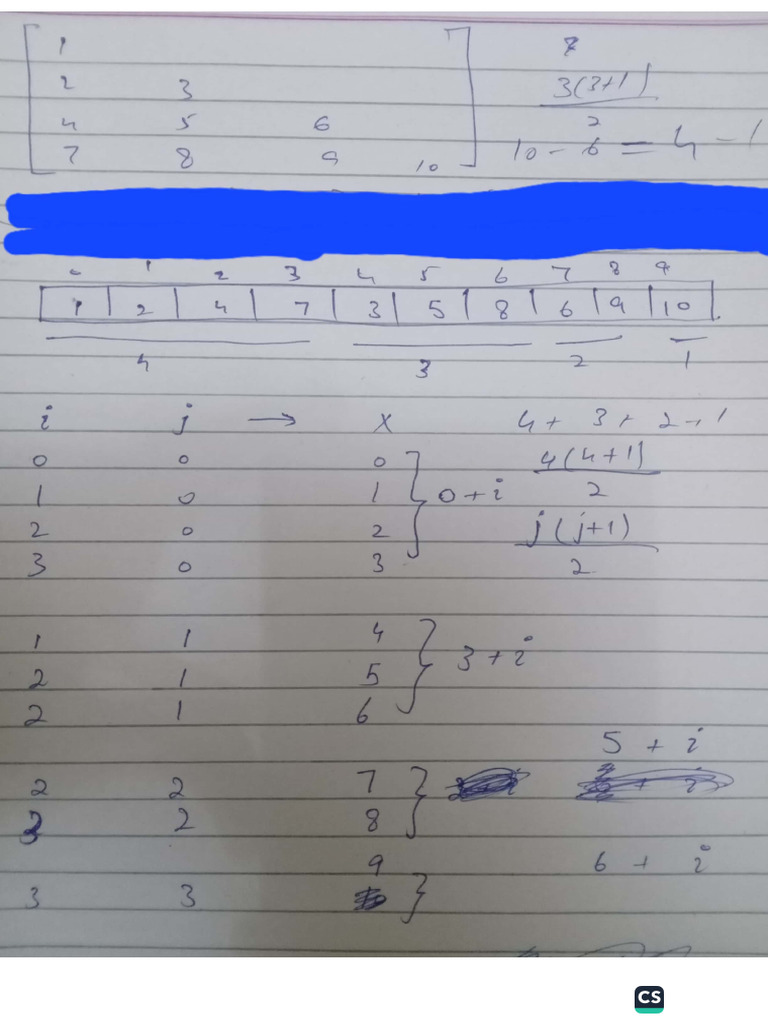 1 7
2 3 3(3+1)
4 5 6 2
7 8 9 10 10 - 6 = 4 - 1
0 1 2 3 4 5 6 7 8 9
1 2 4 7 3 5 8 6 9 10
4 3 2 1
i j → x 4 + 3 + 2 + 1
0 0 0 4(4+1)
1 0 1 0 + i 2
2 0 2 j(j+1)
3 0 3 2
1 1 4
2 1 5 3 + i
2 1 6
5 + i
2 2 7
3 2 8
9 6 + i
3 3
CS